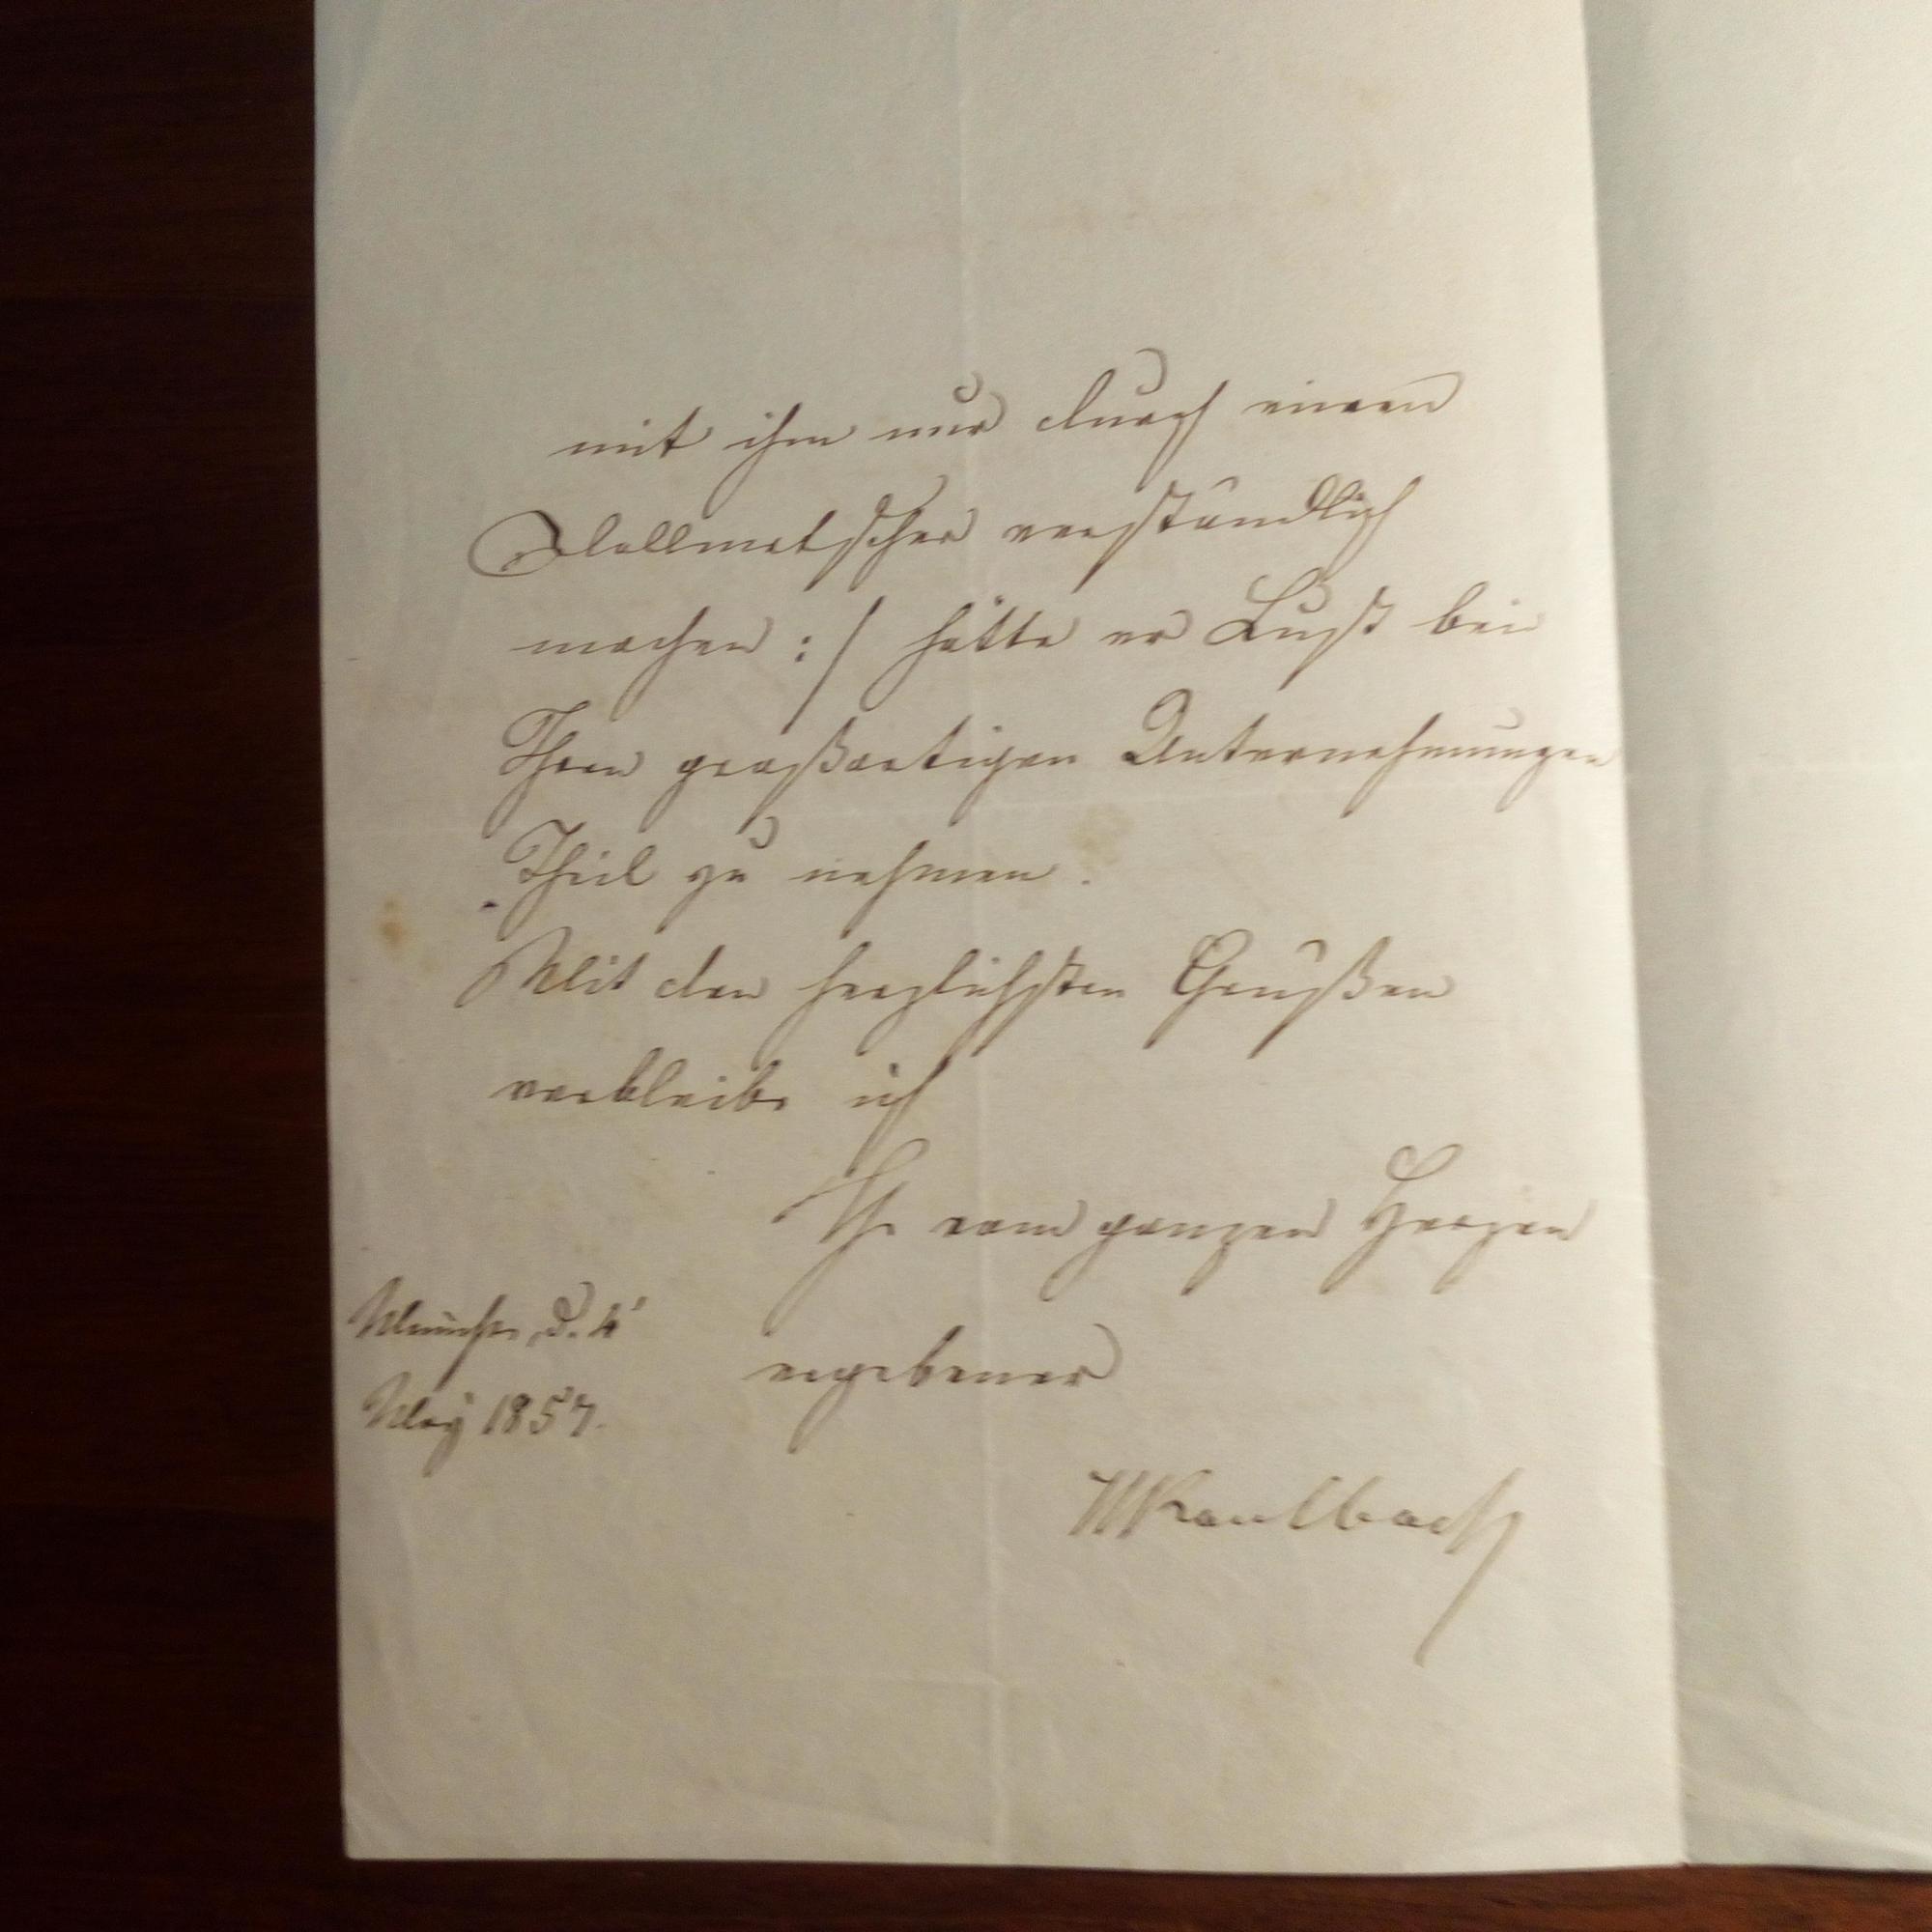 mit ihm nur durch einen
Dollmetscher verständlich
machen :/ hätte er Lust bei
Ihren großartigen Unternehmungen
Theil zu nehmen.
Mit den herzlichsten Grüßen
verbleibe ich
Ihr vom ganzen Herzen
München, d. 4'
ergebener
May 1857.
WKaulbach